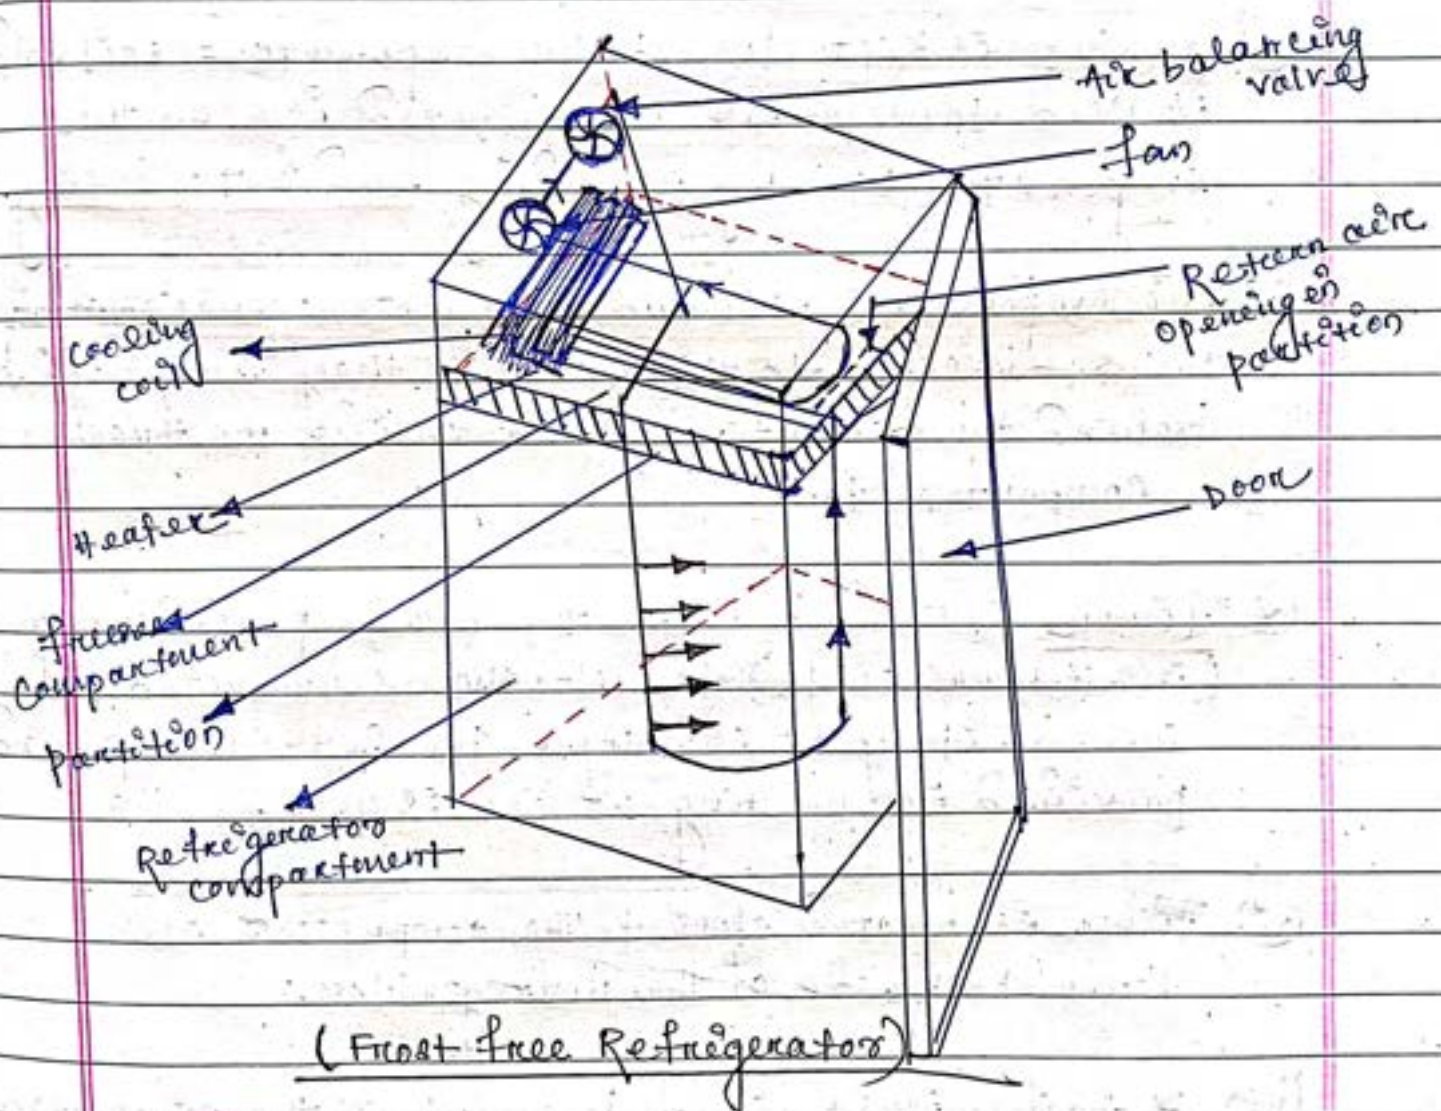 Air balancing
valve
fan
Return air
opening in
partition
Cooling
coil
Door
Heater
freezer
compartment
partition
Refrigerator
compartment
(Frost free Refrigerator)